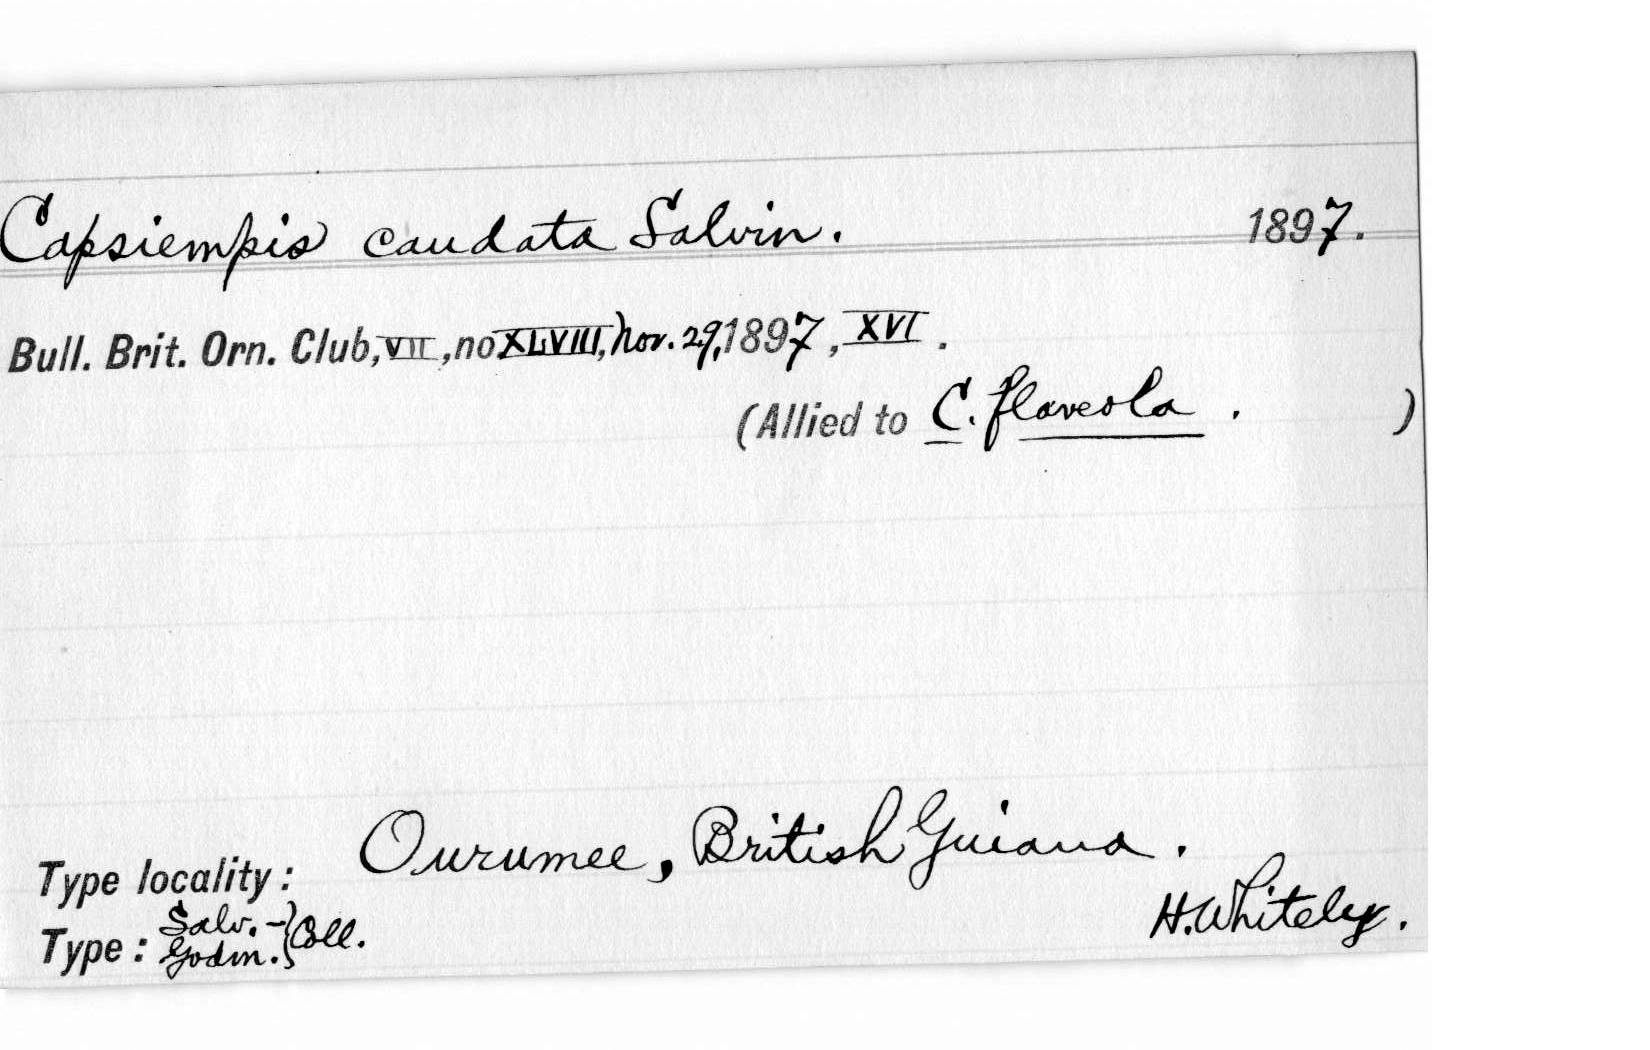 Capsiempis caudata Salvin. 1897.
Bull. Brit. Orn. Club, VII, no XLVIII, Nov. 29, 1897, XVI.
(Allied to C. flaveola. )
Type locality: Ourumee, British Guiana.
H. Whitely.
Type: Salv.-Godm. Coll.